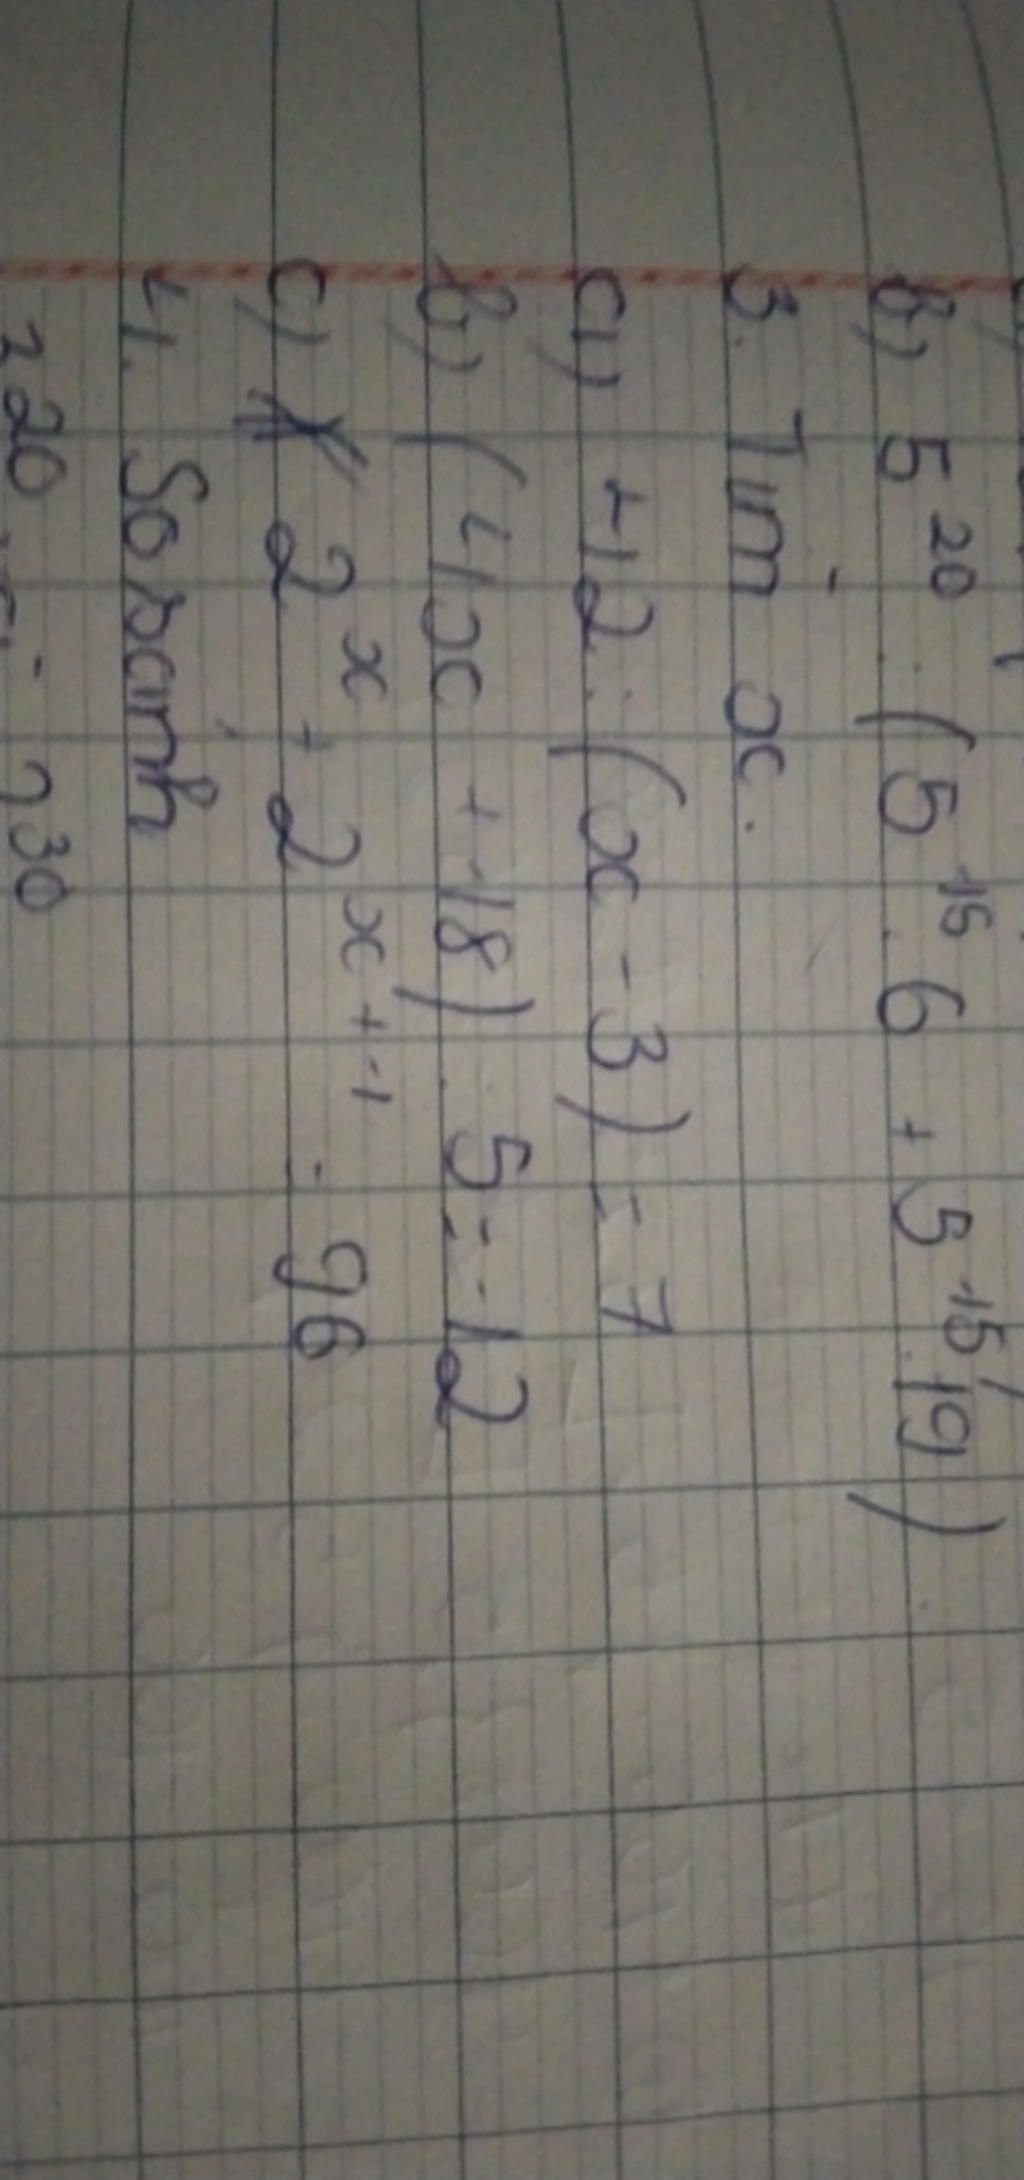 b) 5^20 : (5^15 . 6 + 5^15 . 19)
3. Tìm x.
a) 12 : (x - 3) = 7
b) (4x + 18) : 5 = 12
c) 2^x + 2^x+1 = 96
4. So sánh
30